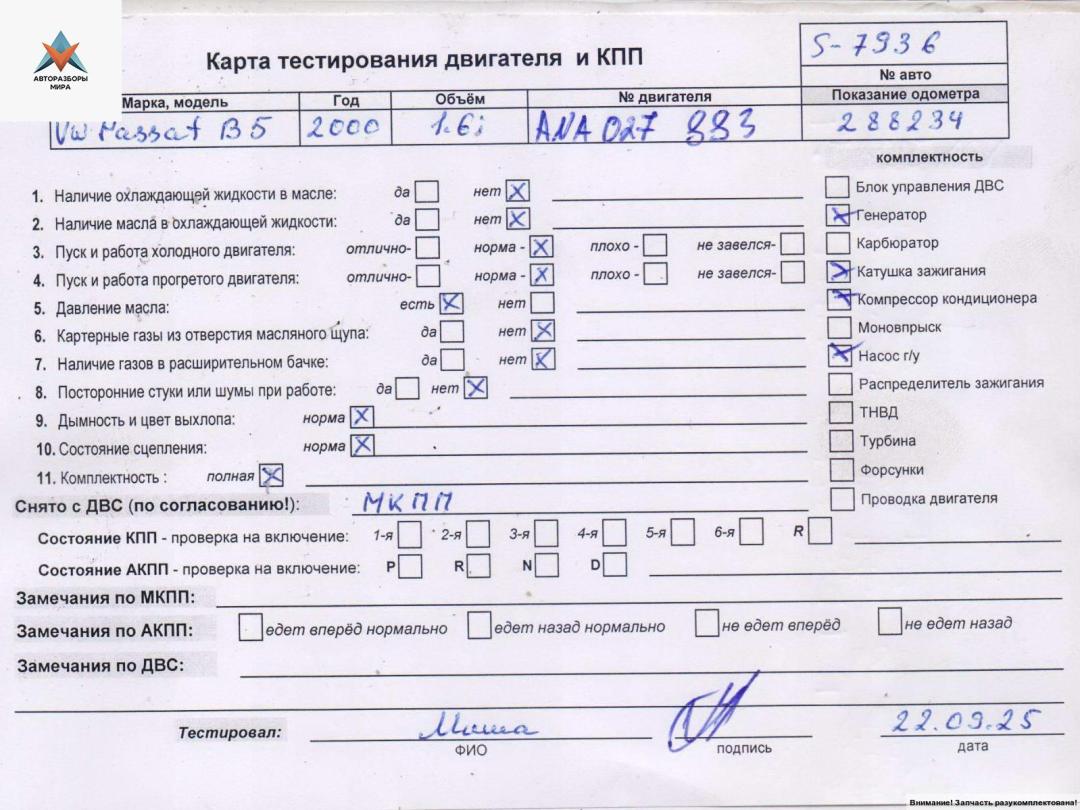 АВТОРАЗБОРЫ
МИРА
Карта тестирования двигателя и КПП
S-7936
№ авто
Марка, модель Год Объём № двигателя Показание одометра
VW Passat B5 2000 1.6i ANA 027 993 288234
комплектность
1. Наличие охлаждающей жидкости в масле: да нет
Блок управления ДВС
2. Наличие масла в охлаждающей жидкости: да нет
Генератор
3. Пуск и работа холодного двигателя: отлично- норма - плохо - не завелся-
Карбюратор
4. Пуск и работа прогретого двигателя: отлично- норма - плохо - не завелся-
Катушка зажигания
5. Давление масла: есть нет
Компрессор кондиционера
6. Картерные газы из отверстия масляного щупа: да нет
Моновпрыск
7. Наличие газов в расширительном бачке: да нет
Насос г/у
8. Посторонние стуки или шумы при работе: да нет
Распределитель зажигания
9. Дымность и цвет выхлопа: норма
ТНВД
10. Состояние сцепления: норма
Турбина
11. Комплектность : полная
Форсунки
Снято с ДВС (по согласованию!): МКПП
Проводка двигателя
Состояние КПП - проверка на включение: 1-я 2-я 3-я 4-я 5-я 6-я R
Состояние АКПП - проверка на включение: P R N D
Замечания по МКПП:
Замечания по АКПП: едет вперёд нормально едет назад нормально не едет вперёд не едет назад
Замечания по ДВС:
Тестировал: Миша 22.09.25
ФИО подпись дата
Внимание! Запчасть разукомплектована!